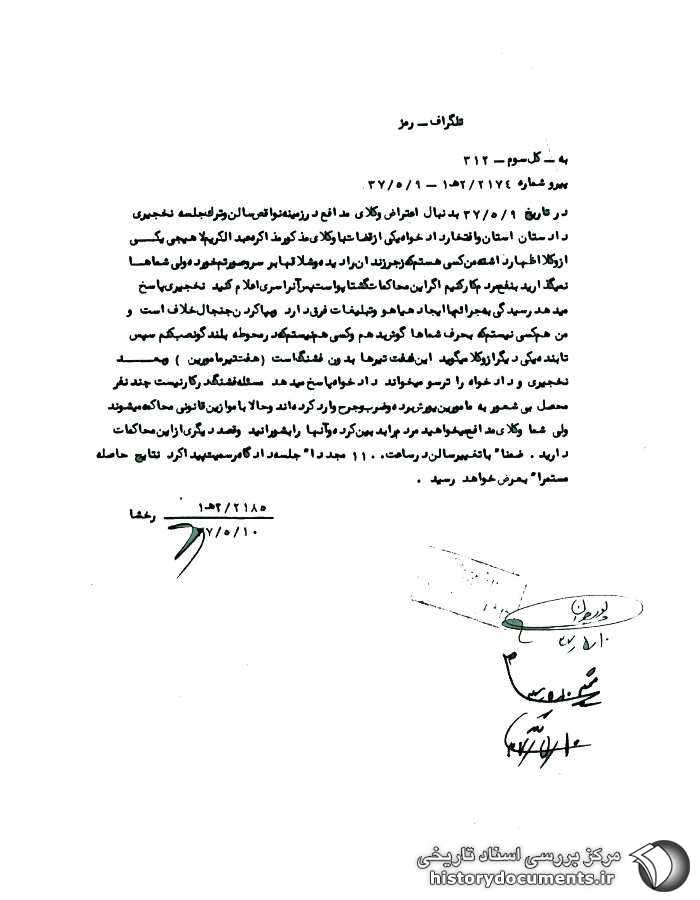 تلگراف ـ رمز
به ـ کل سوم ـ ۳۱۲
پیرو شماره ۲/۲۱۷٤هـ۱ ـ ۳۷/٥/۹
در تاریخ ۳۷/٥/۹ بدنبال اعتراض وکلای مدافع در زمینه نواقص سالن و ترک جلسه نخجیری
دادستان استان و افتخار دادخواه یکی از قضات با وکلای مذکور مذاکره عبدالکریم لاهیجی یکی
از وکلا اظهار داشته من کسی هستم که زجر زندان را دیده و شلاقها بر سر و صورتم خورده ولی شماها
نمیگذارید بنفع مردم کار کنیم اگر این محاکمات گشتاپو است پس آنرا سری اعلام کنید نخجیری پاسخ
میدهد رسیدگی به جرائم با ایجاد هیاهو و تبلیغات فرق دارد و بپا کردن جنجال خلاف است و
من هم کسی نیستم که بحرف شماها گوش بدهم و کسی هم نیستم که در محوطه بلندگو نصب کنم سپس
تابنده یکی دیگر از وکلا میگوید این هفت تیرها بدون فشنگ است (هفت تیر مامورین) و بعد
نخجیری و دادخواه را ترسو میخواند دادخواه پاسخ میدهد مسئله فشنگ در کار نیست چند نفر
محصل بی شعور به مامورین یورش برده و ضرب و جرح وارد کرده اند و حالا با موازین قانونی محاکمه میشوند
ولی شما وکلای مدافع میخواهید مردم را بد بین کرده و آنها را بشورانید و قصد دیگری از این محاکمات
دارید . ضمنا" با تغییر سالن در ساعت ۱۱۰۰ مجددا" جلسه دادگاه رسمیت پیدا کرد نتایج حاصله
مستمرا" بعرض خواهد رسید .
۲/۲۱۸٥هـ۱ رخشا
۳۷/٥/۱۰
مرکز بررسی اسناد تاریخی
historydocuments.ir